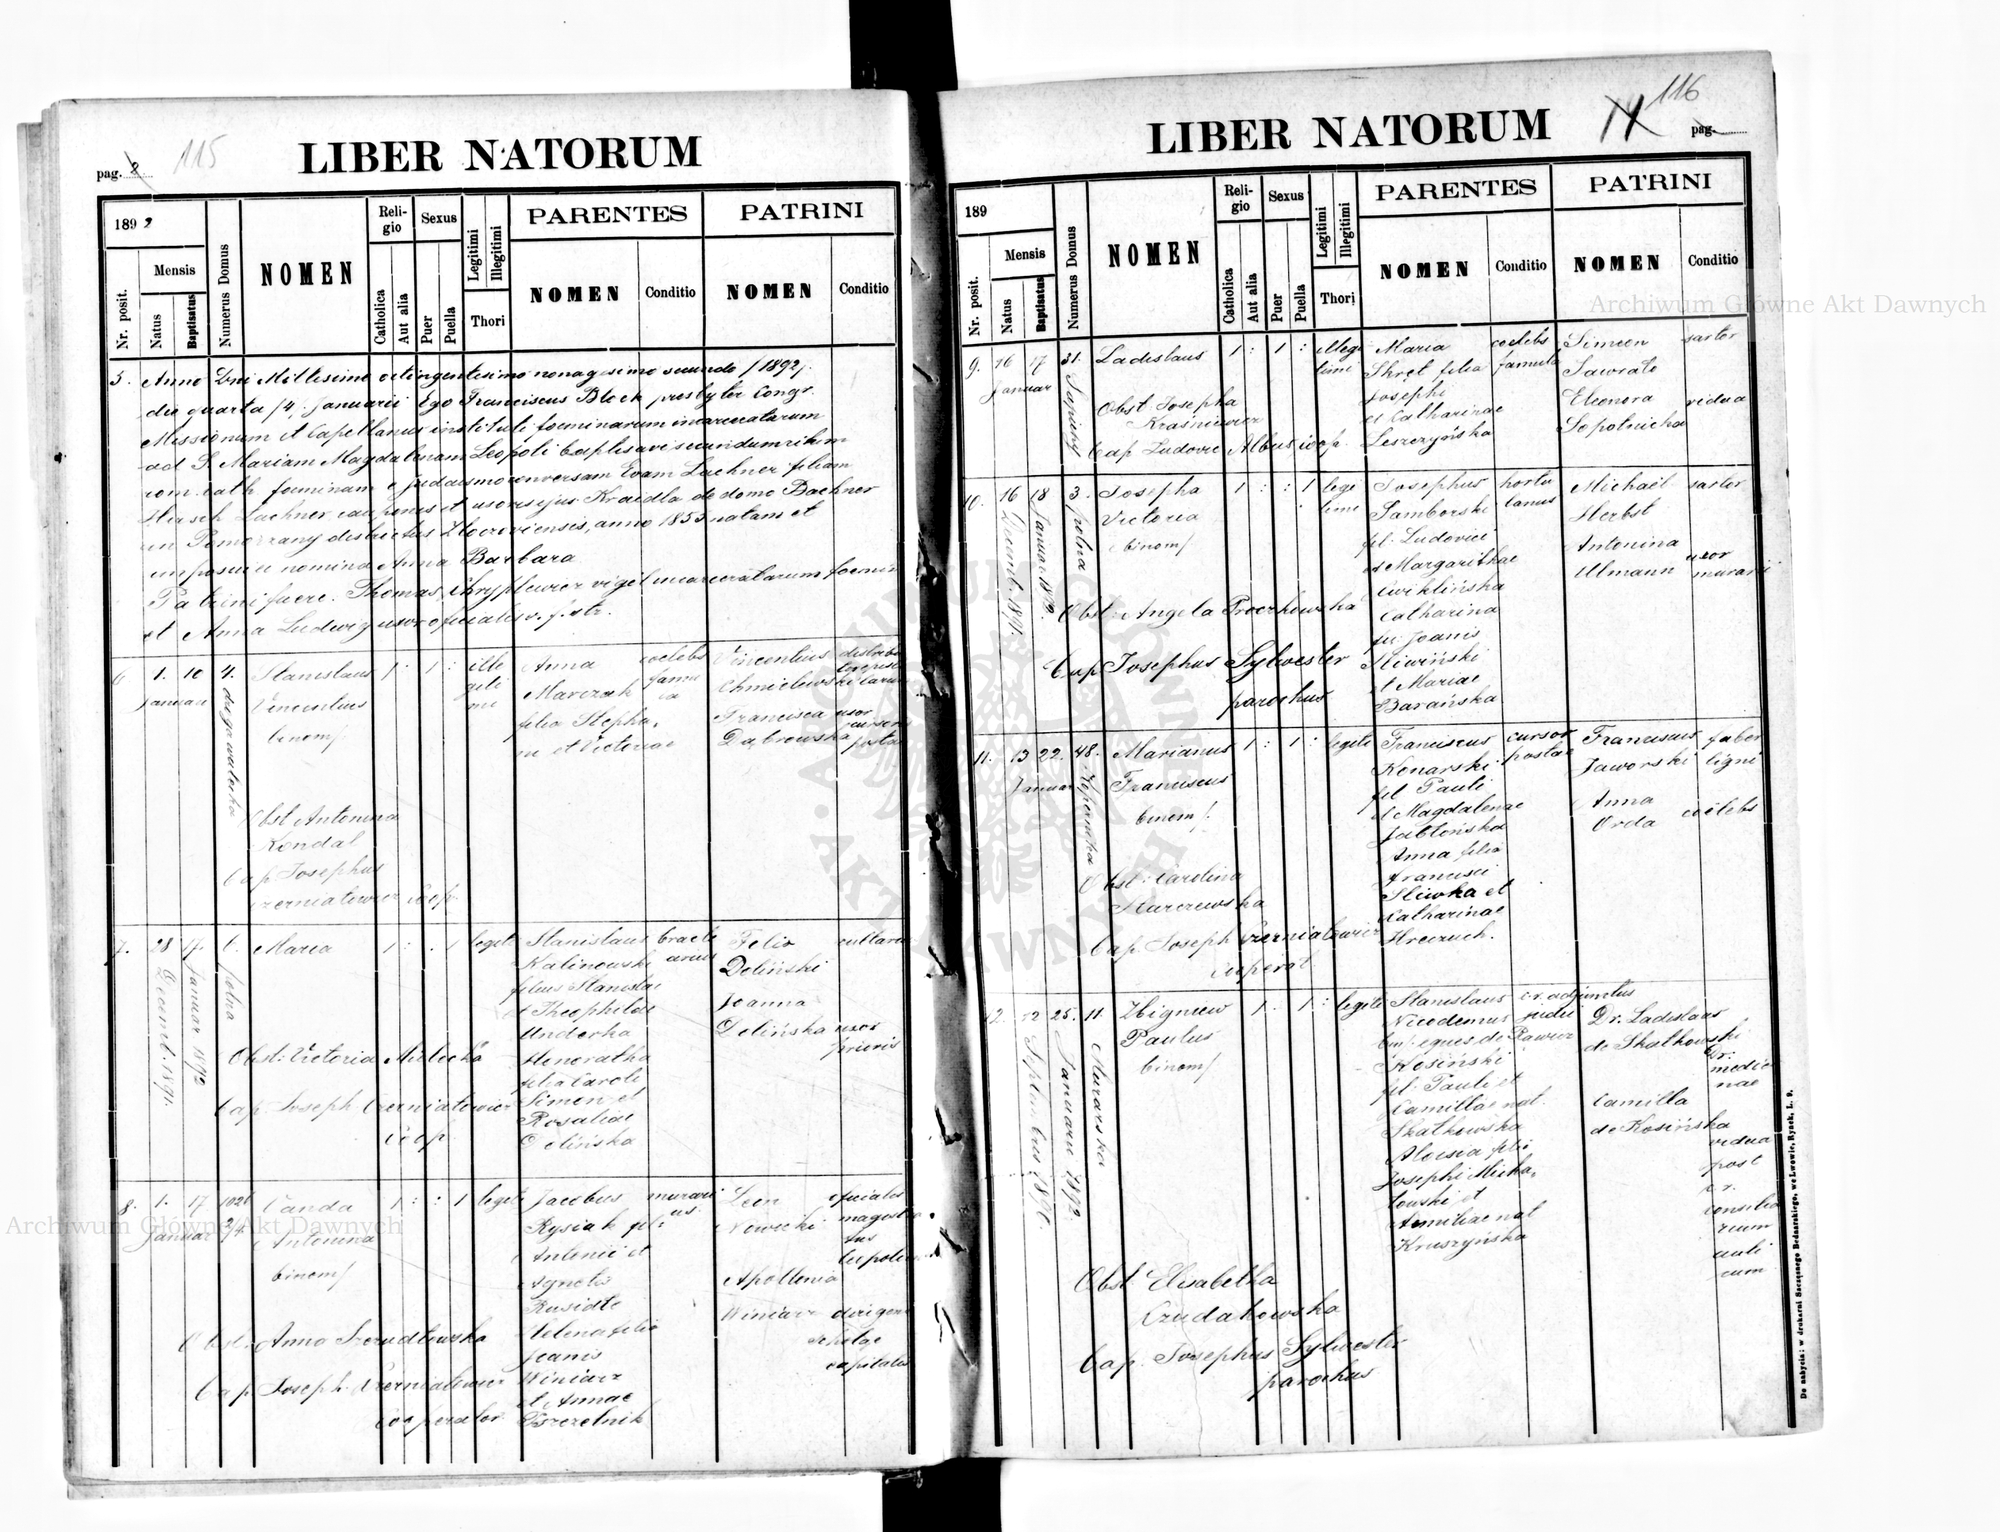 pag. 8
115
LIBER NATORUM
1892
Nr. posit.
Mensis
Natus
Baptisatus
Numerus Domus
NOMEN
Religio
Catholica
Aut alia
Sexus
Puer
Puella
Legitimi
Illegitimi
Thori
PARENTES
NOMEN
Conditio
PATRINI
NOMEN
Conditio
5. Anno Dni Millesimo octingentesimo nonagesimo secundo /1892/.
die quarta /4/. Januarii Ego Franciscus Block presbyter Congr.
Missionum et Capellanus instituti foeminarum incarceratarum
ad S. Mariam Magdalenam Leopoli baptisavi secundum ritum
rom. cath. foeminam e Judaismo conversam Evam Lachner filiam
Hersch Lachner cauponis et uxoris ejus Kraidla de domo Bachner
in Pomorzany districtus Zloczoviensis, anno 1855 natam et
imposui ei nomina Anna Barbara
Patrini fuere. Thomas Skryplewicz vigil incarceratarum foemin
et Anna Ludwig uxor oficialis
6
1. 10
Januari
4.
Stanislaus
Vincentius
binom/
1 : 1 :
ille
giti
mi
Anna
Marczak
filia Stepha
ni et Victoriae
coelebs
famu
la
Vincentius
Chmielewski
Francisca
Dąbrowska
uxor
cursoris
postae
Obst Antonina
Kendal
Bap Josephus
Czerniatowicz Coop.
7.
28 17.
Decemb. 1891.
Januar 1892
6.
Maria
1 : . 1
legiti
Stanislaus
Kalinowski
filius Stanislai
et Theophilae
Underka
Honoratha
filia Caroli
Simon et
Rosaliae
Dolińska
Felix
Doliński
Joanna
Dolińska
uxor
prioris
Obst: Victoria
Bap: Joseph Czerniatowicz
Coop.
8.
1. 17
Januar
1026
2/4
Vanda
Antonina
binom/
1 : : 1
legiti
Jacobus
Rysiak fil:
Antonii et
Agnetis
Rusidlo
Helena filia
Joanis
Winiarz
et Annae
Brzezelnik
murari
us
Leon
Nowicki
oficialis
magistra
tus
Leopolien
Apollonia
Winiarz
dirigens
scholae
capitalis
Obst: Anna Szerudtowska
Bap Joseph Czerniatowicz
Cooperator
116
LIBER NATORUM
pag.
189
Nr. posit.
Mensis
Natus
Baptisatus
Numerus Domus
NOMEN
Religio
Catholica
Aut alia
Sexus
Puer
Puella
Legitimi
Illegitimi
Thori
PARENTES
NOMEN
Conditio
PATRINI
NOMEN
Conditio
9.
16 17
Januar
31.
Sapiehy
Ladislaus
1 : 1 :
illegi
timi
Maria
Skręt filia
Josephi
et Catharinae
Leszczyńska
coelebs
famula
Simeon
Sawiato
Eleonora
Sopotnicka
sartor
vidua
Obst. Josepha
Kraśniewicz
Bap Ludovic Albus coop.
10.
16 18
Decemb. 1891.
Januar 1892.
3.
polna
Josepha
Victoria
binom/
1 : : 1
legi
timi
Josephus
Samborski
fil. Ludovici
et Margarithae
Cwiklińska
Catharina
fil. Joanis
Sliwiński
et Mariae
Barańska
hortu
lanus
Michaël
Herbst
Antonina
Ulmann
sartor
uxor
murarii
Obst: Angela Proczkowska
Bap Josephus Sylwester
parochus
11.
13 22.
Januar
48.
Kopernika
Marianus
Franciscus
binom/.
1 : 1 :
legiti
Franciscus
Kenarski
fil Pauli
et Magdalenae
Jabłońska
Anna filia
Francisci
Sliwka et
Catharinae
Hreczuch.
cursor
postae
Franciscus
Jaworski
Anna
Orda
faber
ligni
coelebs
Obst: Carolina
Starczewska
Bap Joseph Czerniatowicz
Cooperat.
12.
12 25.
Septembris 1891.
Januarii 1892.
11.
Murarska
Zbigniew
Paulus
binom/
1 : 1 :
legiti
Stanislaus
Nicodemus
bin/ eques de Rawicz
Kosiński
fil. Pauli et
Camillae nat.
Skalkowska
Aloisia filia
Josephi Micha
lowski et
Aemiliae nat
Kruszyńska
c.r. adjunctus
judii
Dr. Ladislaus
de Skalkowski
Dr.
medici
nae
Camilla
de Kosińska
vidua
post
c.r.
consilia
rium
auli
cum
Obst Elisabetha
Czudakowska
Bap. Josephus Sylwester
parochus
Do nabycia: w drukarni Szczęsnego Bednarskiego, we Lwowie, Rynek, L. 9.
Archiwum Główne Akt Dawnych
Archiwum Główne Akt Dawnych